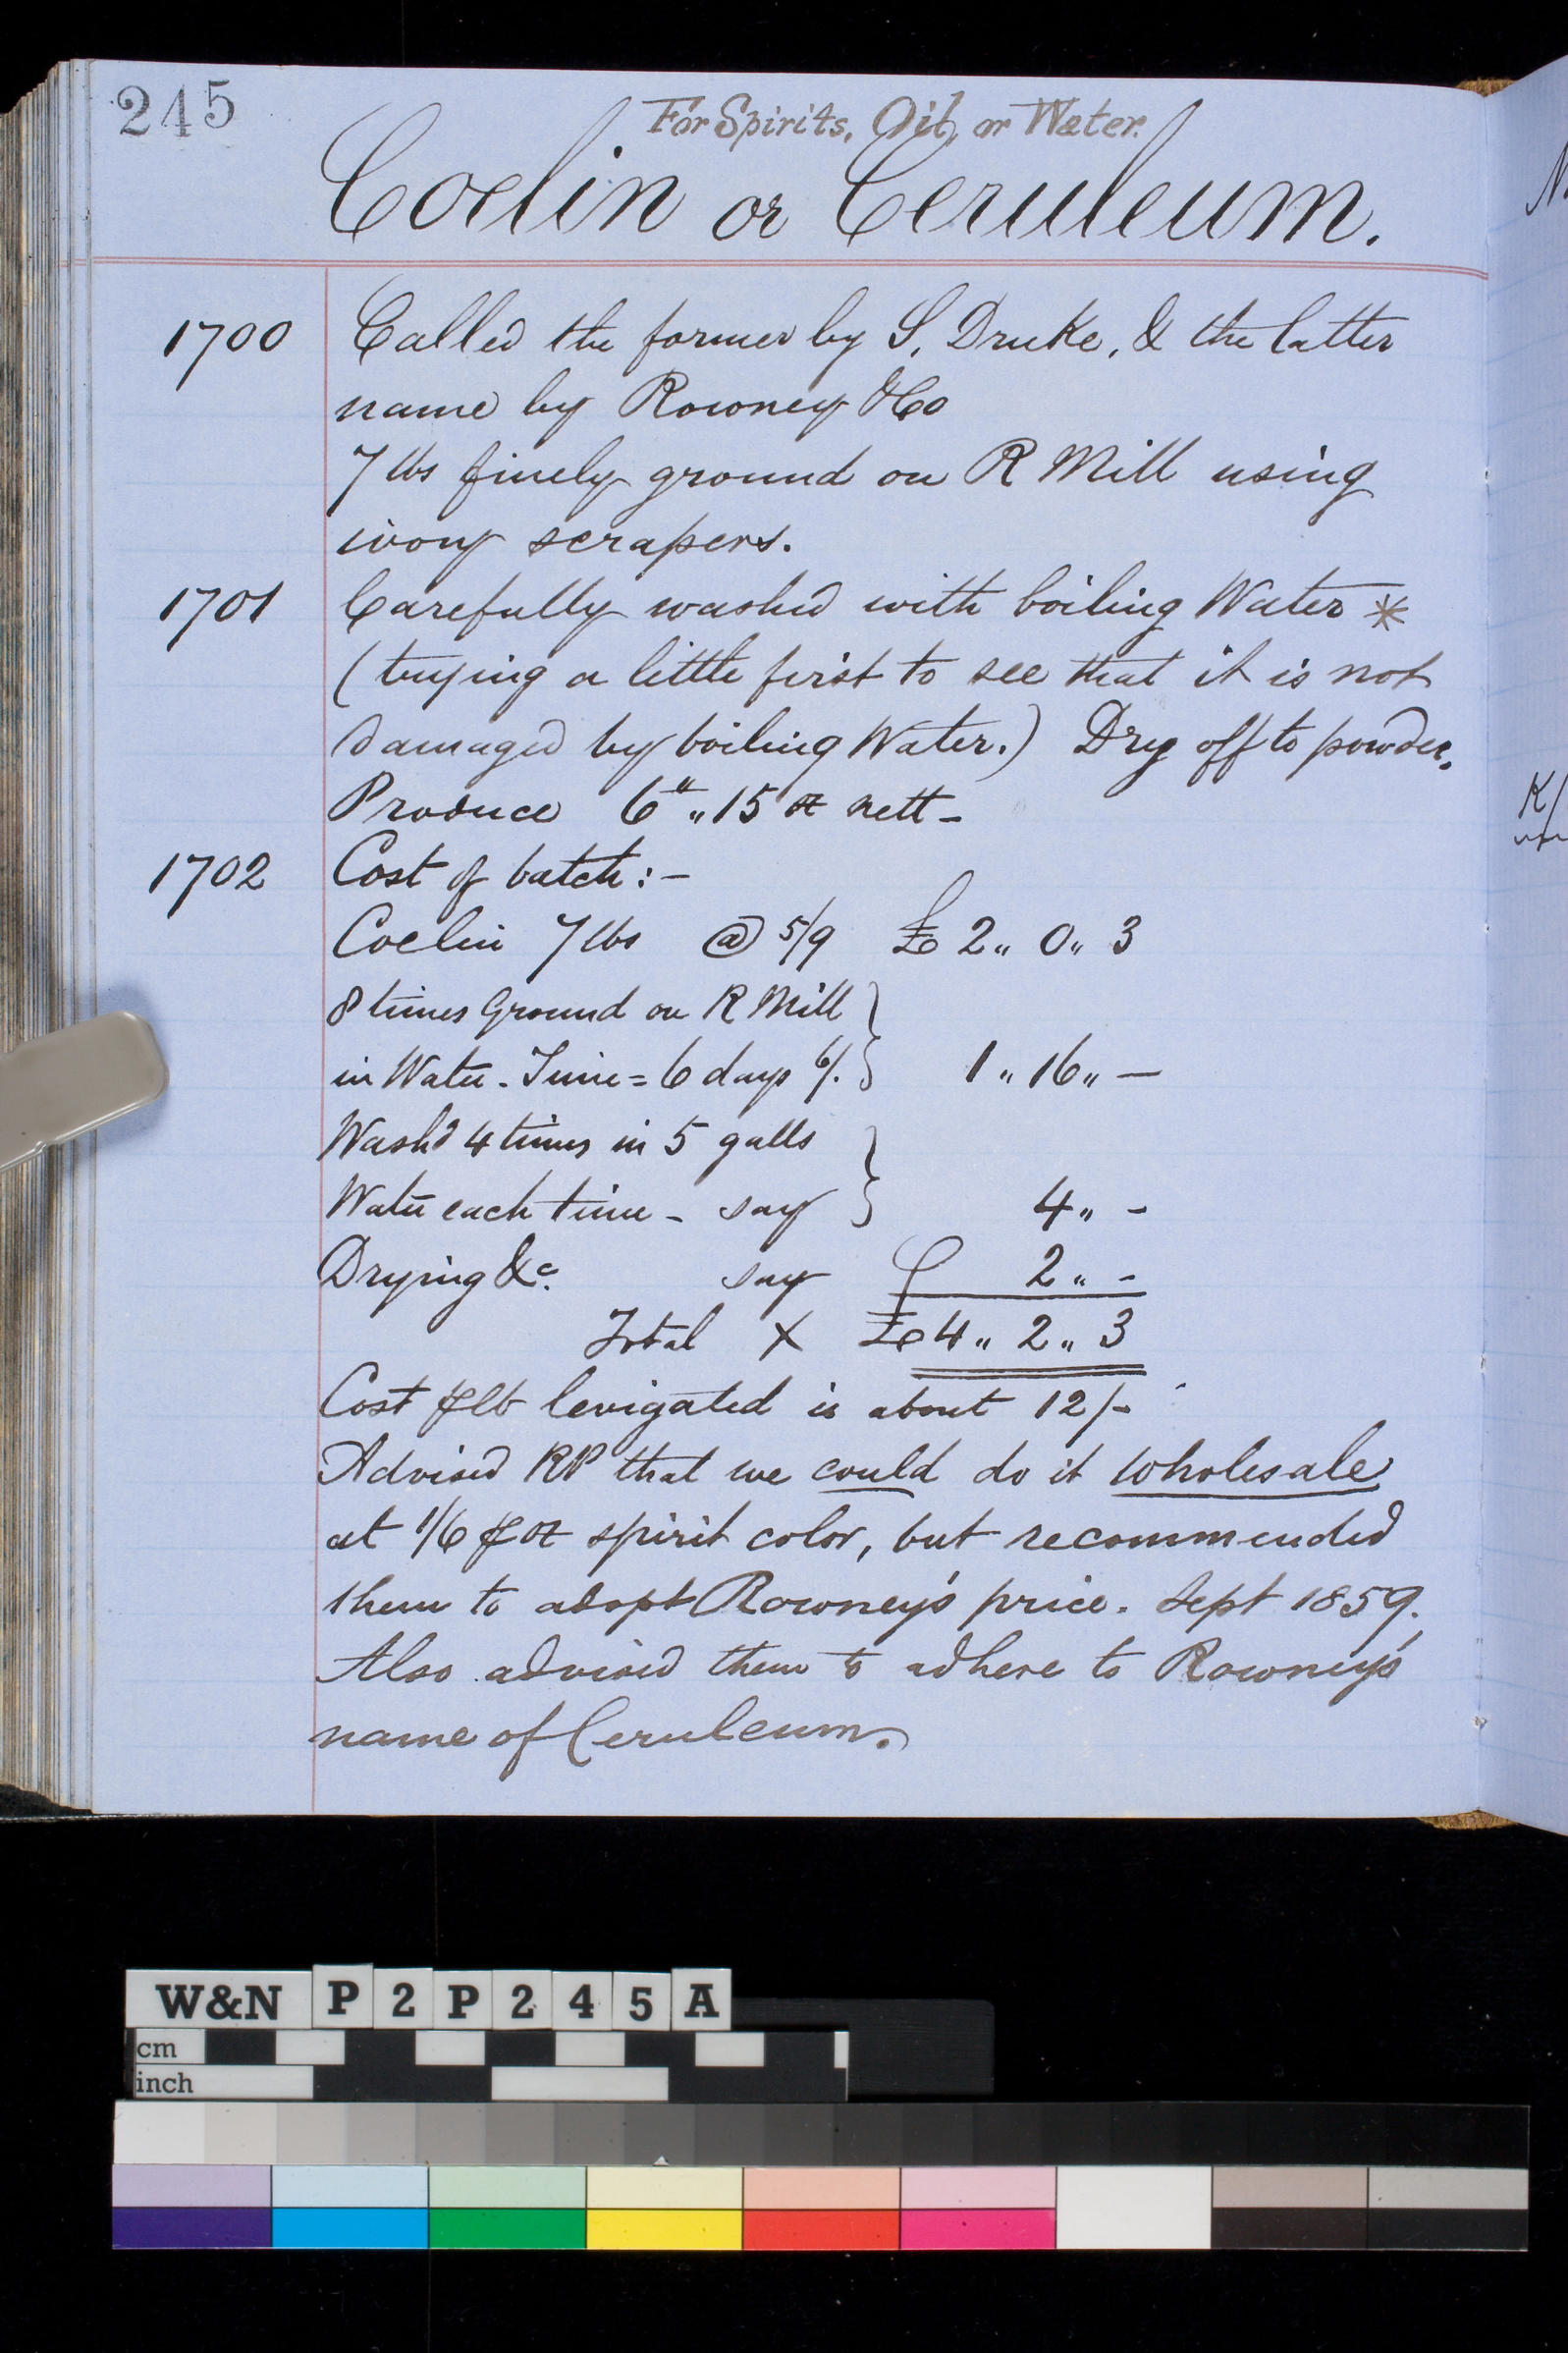 245
For Spirits, Oil, or Water.
Coelin or Ceruleum.
1700 Called the former by S. Druke, & the latter
name by Rowney & Co
7 lbs finely ground on R Mill using
ivory scrapers.
1701 Carefully washed with boiling Water *
(trying a little first to see that it is not
damaged by boiling Water.) Dry off to powder.
Produce 6 lb „ 15 oz nett -
1702 Cost of batch :-
Coelin 7 lbs @ 5/9 £ 2 „ 0 „ 3
8 times Ground on R Mill }
in Water - Time = 6 days 6/. } 1 „ 16 „ -
Washd 4 times in 5 galls }
Water each time - say } 4 „ -
Drying &c. say 2 „ -
Total X £ 4 „ 2 „ 3
Cost ⅌ lb levigated is about 12/-
Advised RP that we could do it wholesale
at 1/6 ⅌ oz spirit color, but recommended
them to adopt Rowney's price. Sept 1859.
Also advised them to adhere to Rowney's
name of Ceruleum.
W&N P2P245A
cm
inch